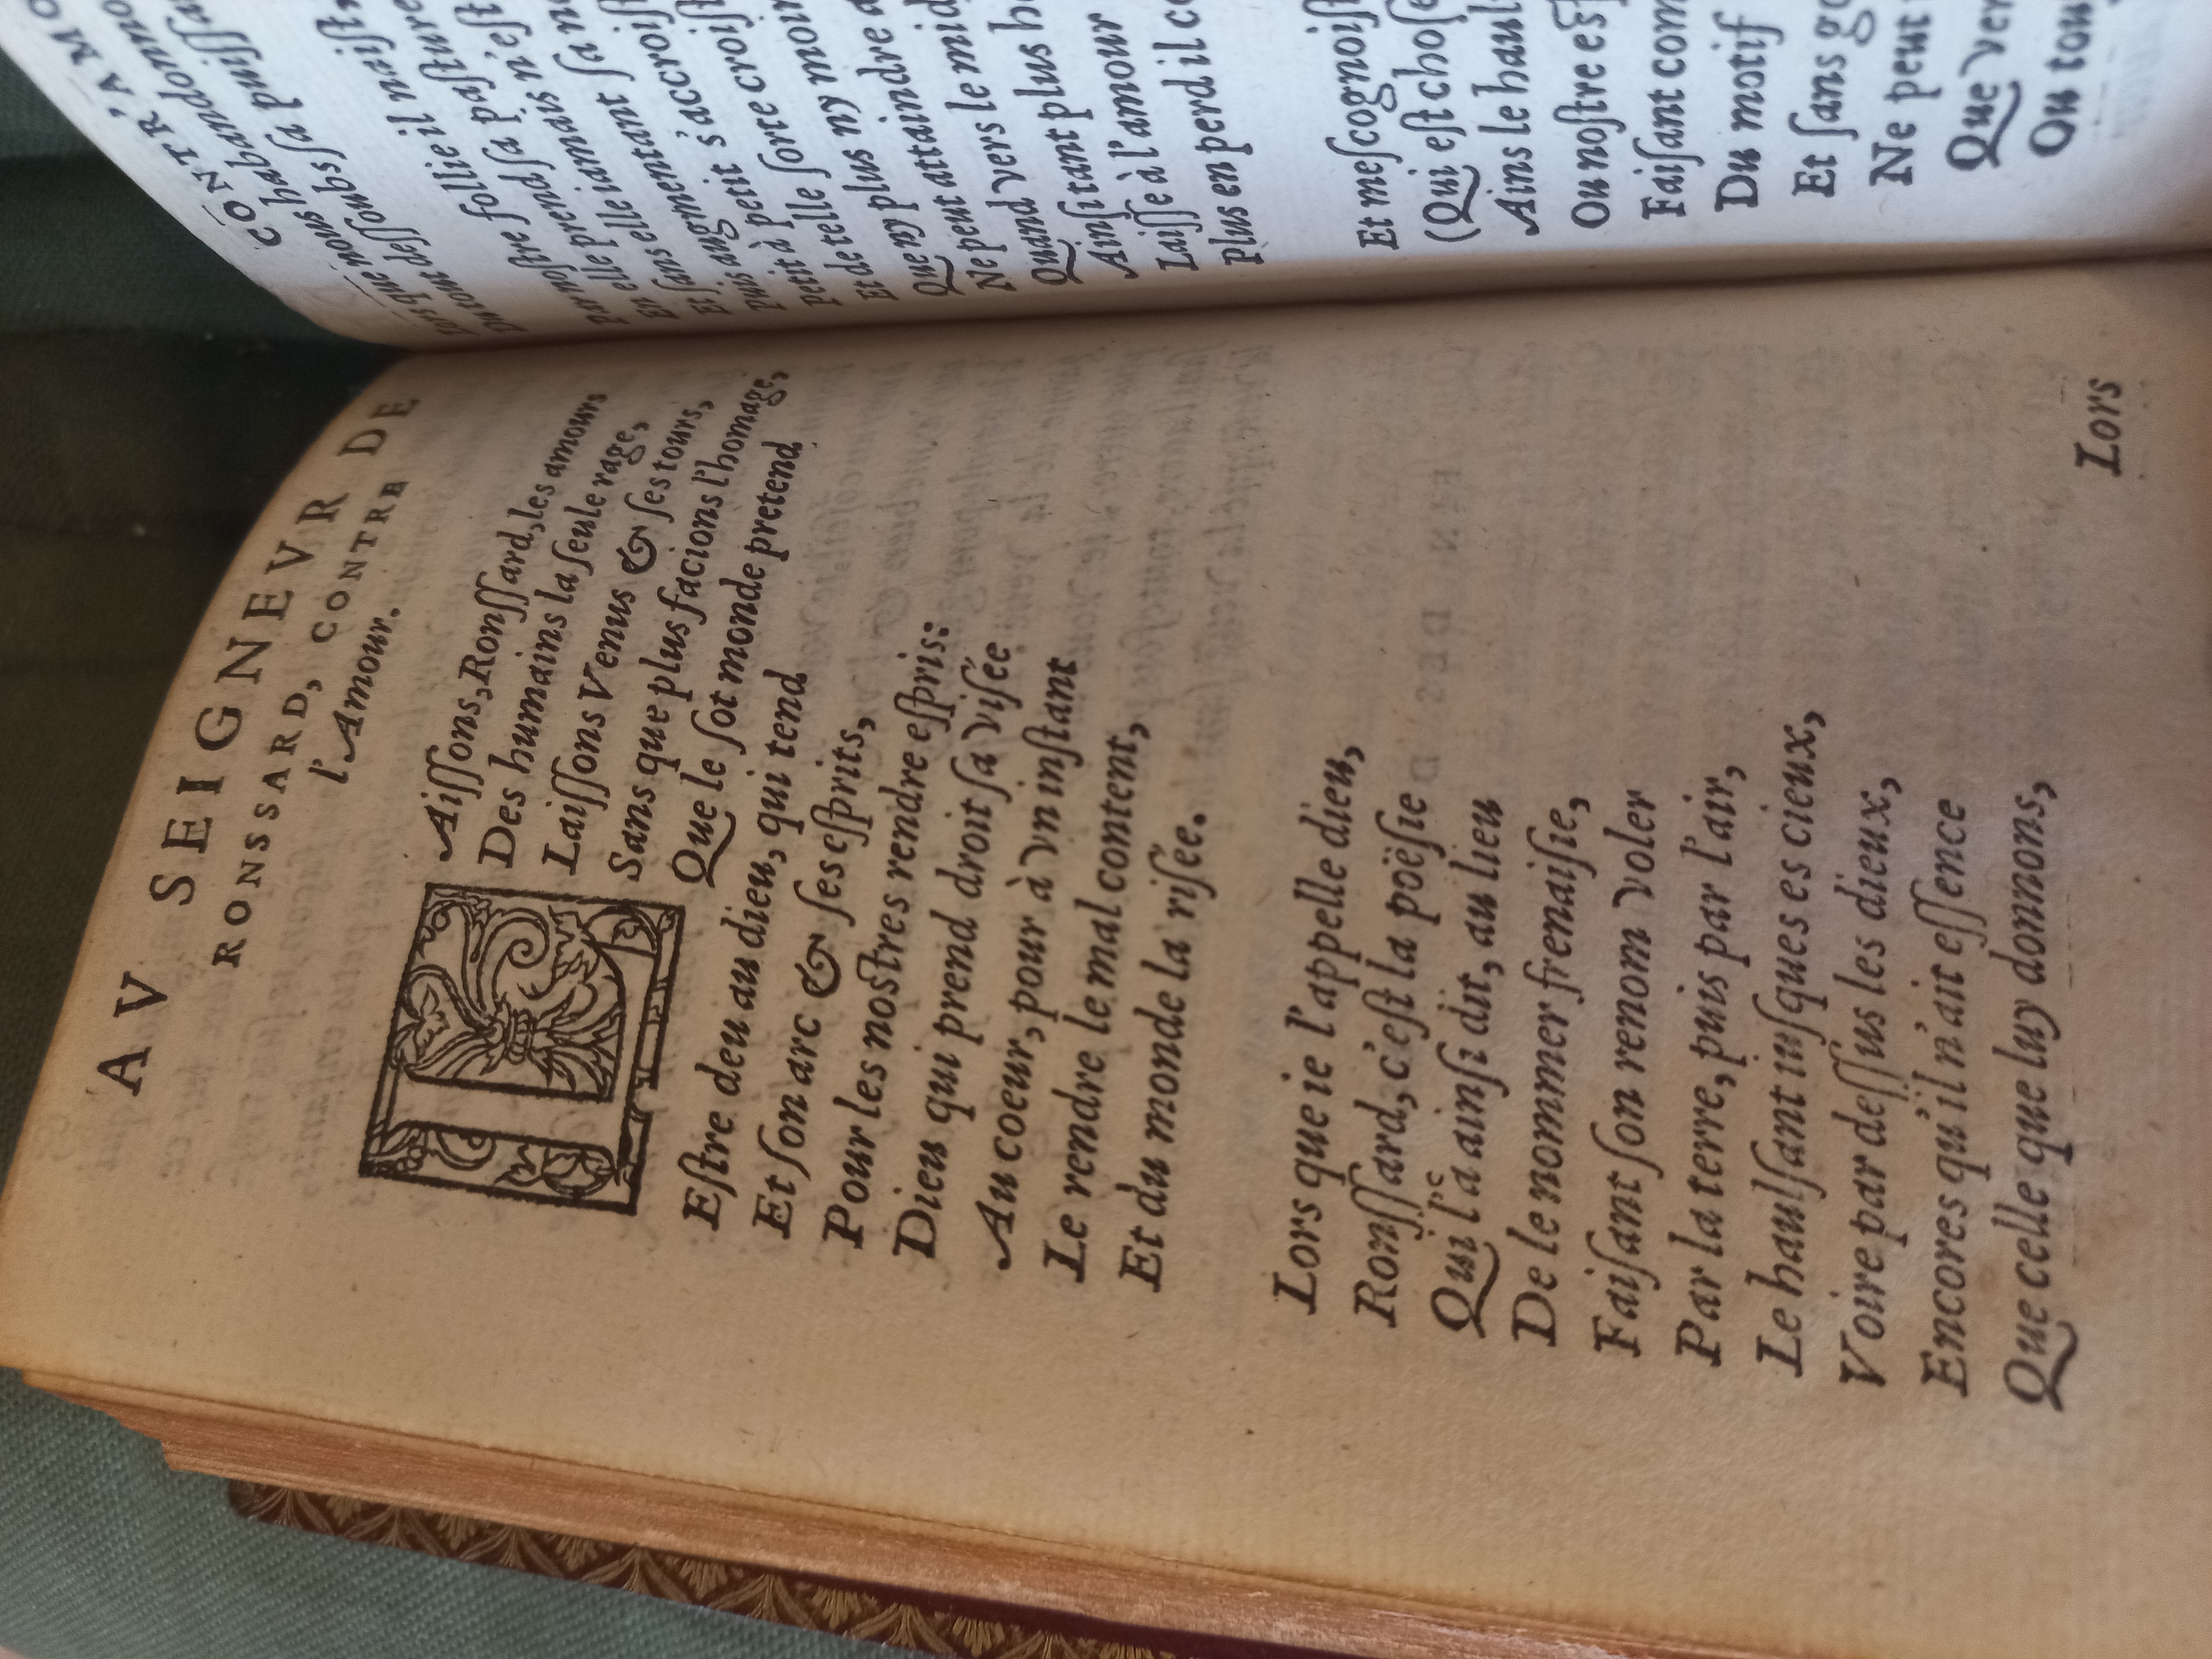 AV SEIGNEVR DE
RONSSARD, CONTRE
l'Amour.
LAiſſons, Ronſſard, les amours
Des humains la ſeule rage,
Laiſſons Venus & ſes tours,
Sans que plus facions l'homage,
Que le ſot monde pretend
Eſtre deu au dieu, qui tend
Et ſon arc & ſes eſprits,
Pour les noſtres rendre eſpris:
Dieu qui prend droit ſa viſée
Au coeur, pour à vn inſtant
Le rendre le mal content,
Et du monde la riſée.
Lors que ie l'appelle dieu,
Ronſſard, c'eſt la poëſie
Qui l'a ainſi dit, au lieu
De le nommer frenaiſie,
Faiſant ſon renom voler
Par la terre, puis par l'air,
Le haulſant iuſques es cieux,
Voire par deſſus les dieux,
Encores qu'il n'ait eſſence
Que celle que luy donnons,
Lors
CONTR'AMO
Lors que nous habandonno
Du tout deſſoubs ſa puiſſa
Par noſtre follie il naiſt,
En elle prend ſa paſture
Et ſans elle iamais n'eſt
En elle augmentant ſa n
Puis augmentant s'accroiſt
Petit à petit croiſt
Et de telle ſorte
Que ny plus ny moin
Ne peut attaindre a
Quand vers le mid
Ainſi tant plus h
Laiſſe à l'amour
Plus en perd il c
Et meſcognoiſ
(Qui eſt choſe
Ains le haul
Ou noſtre eſ
Faiſant com
Du motif
Et ſans go
Ne peut
Que ver
Ou tou